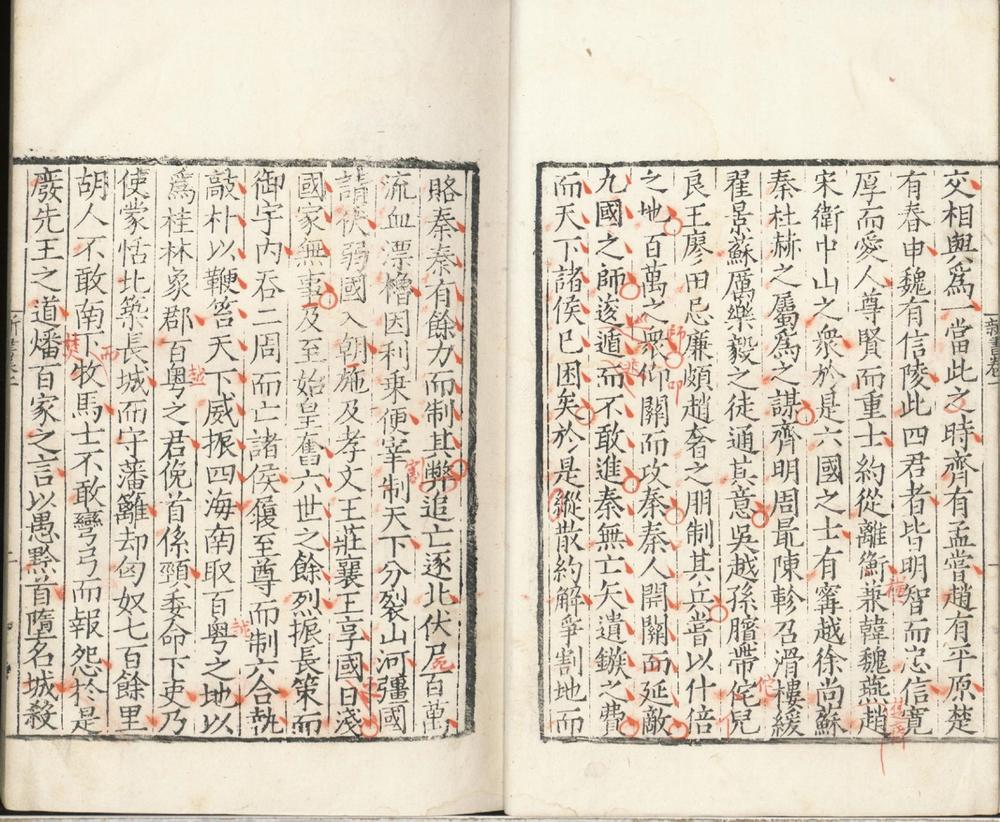 交相與爲一當此之時齊有孟嘗趙有平原楚
有春申魏有信陵此四君者皆明智而忠信寛
厚而愛人尊賢而重士約從離衡兼韓魏燕趙
宋衛中山之衆於是六國之士有甯越徐尚蘇
秦杜赫之屬爲之謀齊明周最陳軫召滑樓緩
翟景蘇厲樂毅之徒通其意吳越孫臏帶佗兒
良王廖田忌廉頗趙奢之朋制其兵嘗以什倍
之地百萬之衆仰關而攻秦秦人開關而延敵
九國之師逡遁而不敢進秦無亡矢遺鏃之費
而天下諸侯已困矣於是縱散約解爭割地而
賂秦秦有餘力而制其弊追亡逐北伏尸百萬
流血漂櫓因利乗便宰制天下分裂山河彊國
請伏弱國入朝施及孝文王莊襄王享國日淺
國家無事及至始皇奮六世之餘烈振長策而
御宇内吞二周而亡諸侯履至尊而制六合執
敲朴以鞭笞天下威振四海南取百粤之地以
爲桂林象郡百粤之君俛首係頸委命下吏乃
使蒙恬北築長城而守藩籬却匈奴七百餘里
胡人不敢南下牧馬士不敢彎弓而報怨於是
廢先王之道燔百家之言以愚黔首墮名城殺
新書卷一